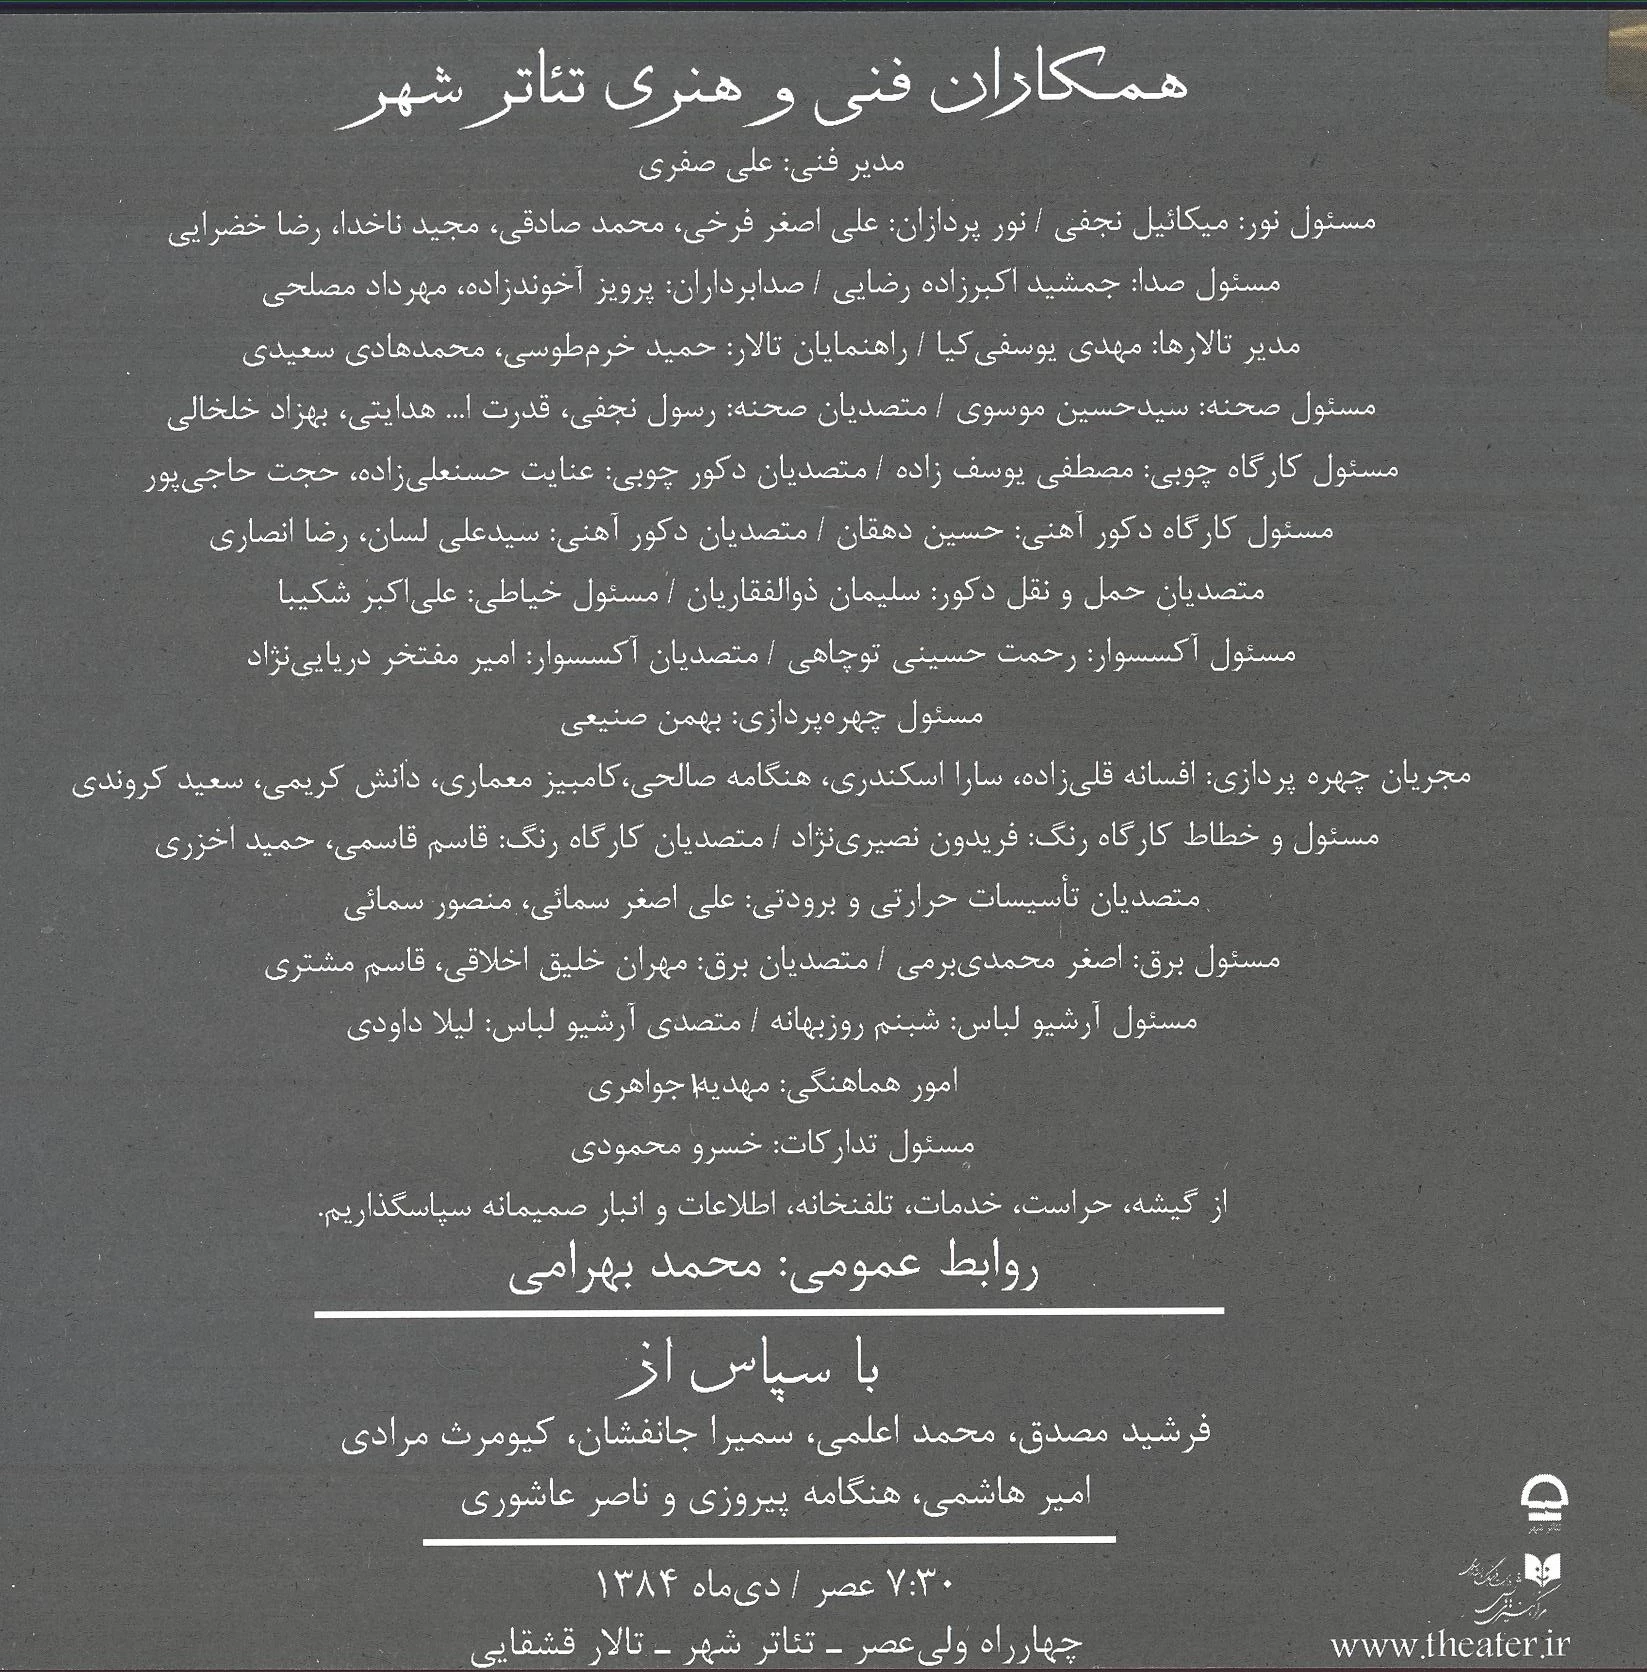 همکاران فنی و هنری تئاتر شهر
مدیر فنی: علی صفری
مسئول نور: میکائیل نجفی / نور پردازان: علی اصغر فرخی، محمد صادقی، مجید ناخدا، رضا خضرایی
مسئول صدا: جمشید اکبرزاده رضایی / صدابرداران: پرویز آخوندزاده، مهرداد مصلحی
مدیر تالارها: مهدی یوسفی‌کیا / راهنمایان تالار: حمید خرم‌طوسی، محمدهادی سعیدی
مسئول صحنه: سیدحسین موسوی / متصدیان صحنه: رسول نجفی، قدرت ا... هدایتی، بهزاد خلخالی
مسئول کارگاه چوبی: مصطفی یوسف زاده / متصدیان دکور چوبی: عنایت حسنعلی‌زاده، حجت حاجی‌پور
مسئول کارگاه دکور آهنی: حسین دهقان / متصدیان دکور آهنی: سیدعلی لسان، رضا انصاری
متصدیان حمل و نقل دکور: سلیمان ذوالفقاریان / مسئول خیاطی: علی‌اکبر شکیبا
مسئول آکسسوار: رحمت حسینی توچاهی / متصدیان آکسسوار: امیر مفتخر دریایی‌نژاد
مسئول چهره‌پردازی: بهمن صنیعی
مجریان چهره پردازی: افسانه قلی‌زاده، سارا اسکندری، هنگامه صالحی،کامبیز معماری، دانش کریمی، سعید کروندی
مسئول و خطاط کارگاه رنگ: فریدون نصیری‌نژاد / متصدیان کارگاه رنگ: قاسم قاسمی، حمید اخزری
متصدیان تأسیسات حرارتی و برودتی: علی اصغر سمائی، منصور سمائی
مسئول برق: اصغر محمدی‌برمی / متصدیان برق: مهران خلیق اخلاقی، قاسم مشتری
مسئول آرشیو لباس: شبنم روزبهانه / متصدی آرشیو لباس: لیلا داودی
امور هماهنگی: مهدیه جواهری
مسئول تدارکات: خسرو محمودی
از گیشه، حراست، خدمات، تلفنخانه، اطلاعات و انبار صمیمانه سپاسگذاریم.
روابط عمومی: محمد بهرامی
با سپاس از
فرشید مصدق، محمد اعلمی، سمیرا جانفشان، کیومرث مرادی
امیر هاشمی، هنگامه پیروزی و ناصر عاشوری
۷:۳۰ عصر / دی‌ماه ۱۳۸۴
چهارراه ولی‌عصر ـ تئاتر شهر ـ تالار قشقایی
تئاتر شهر
www.theater.ir